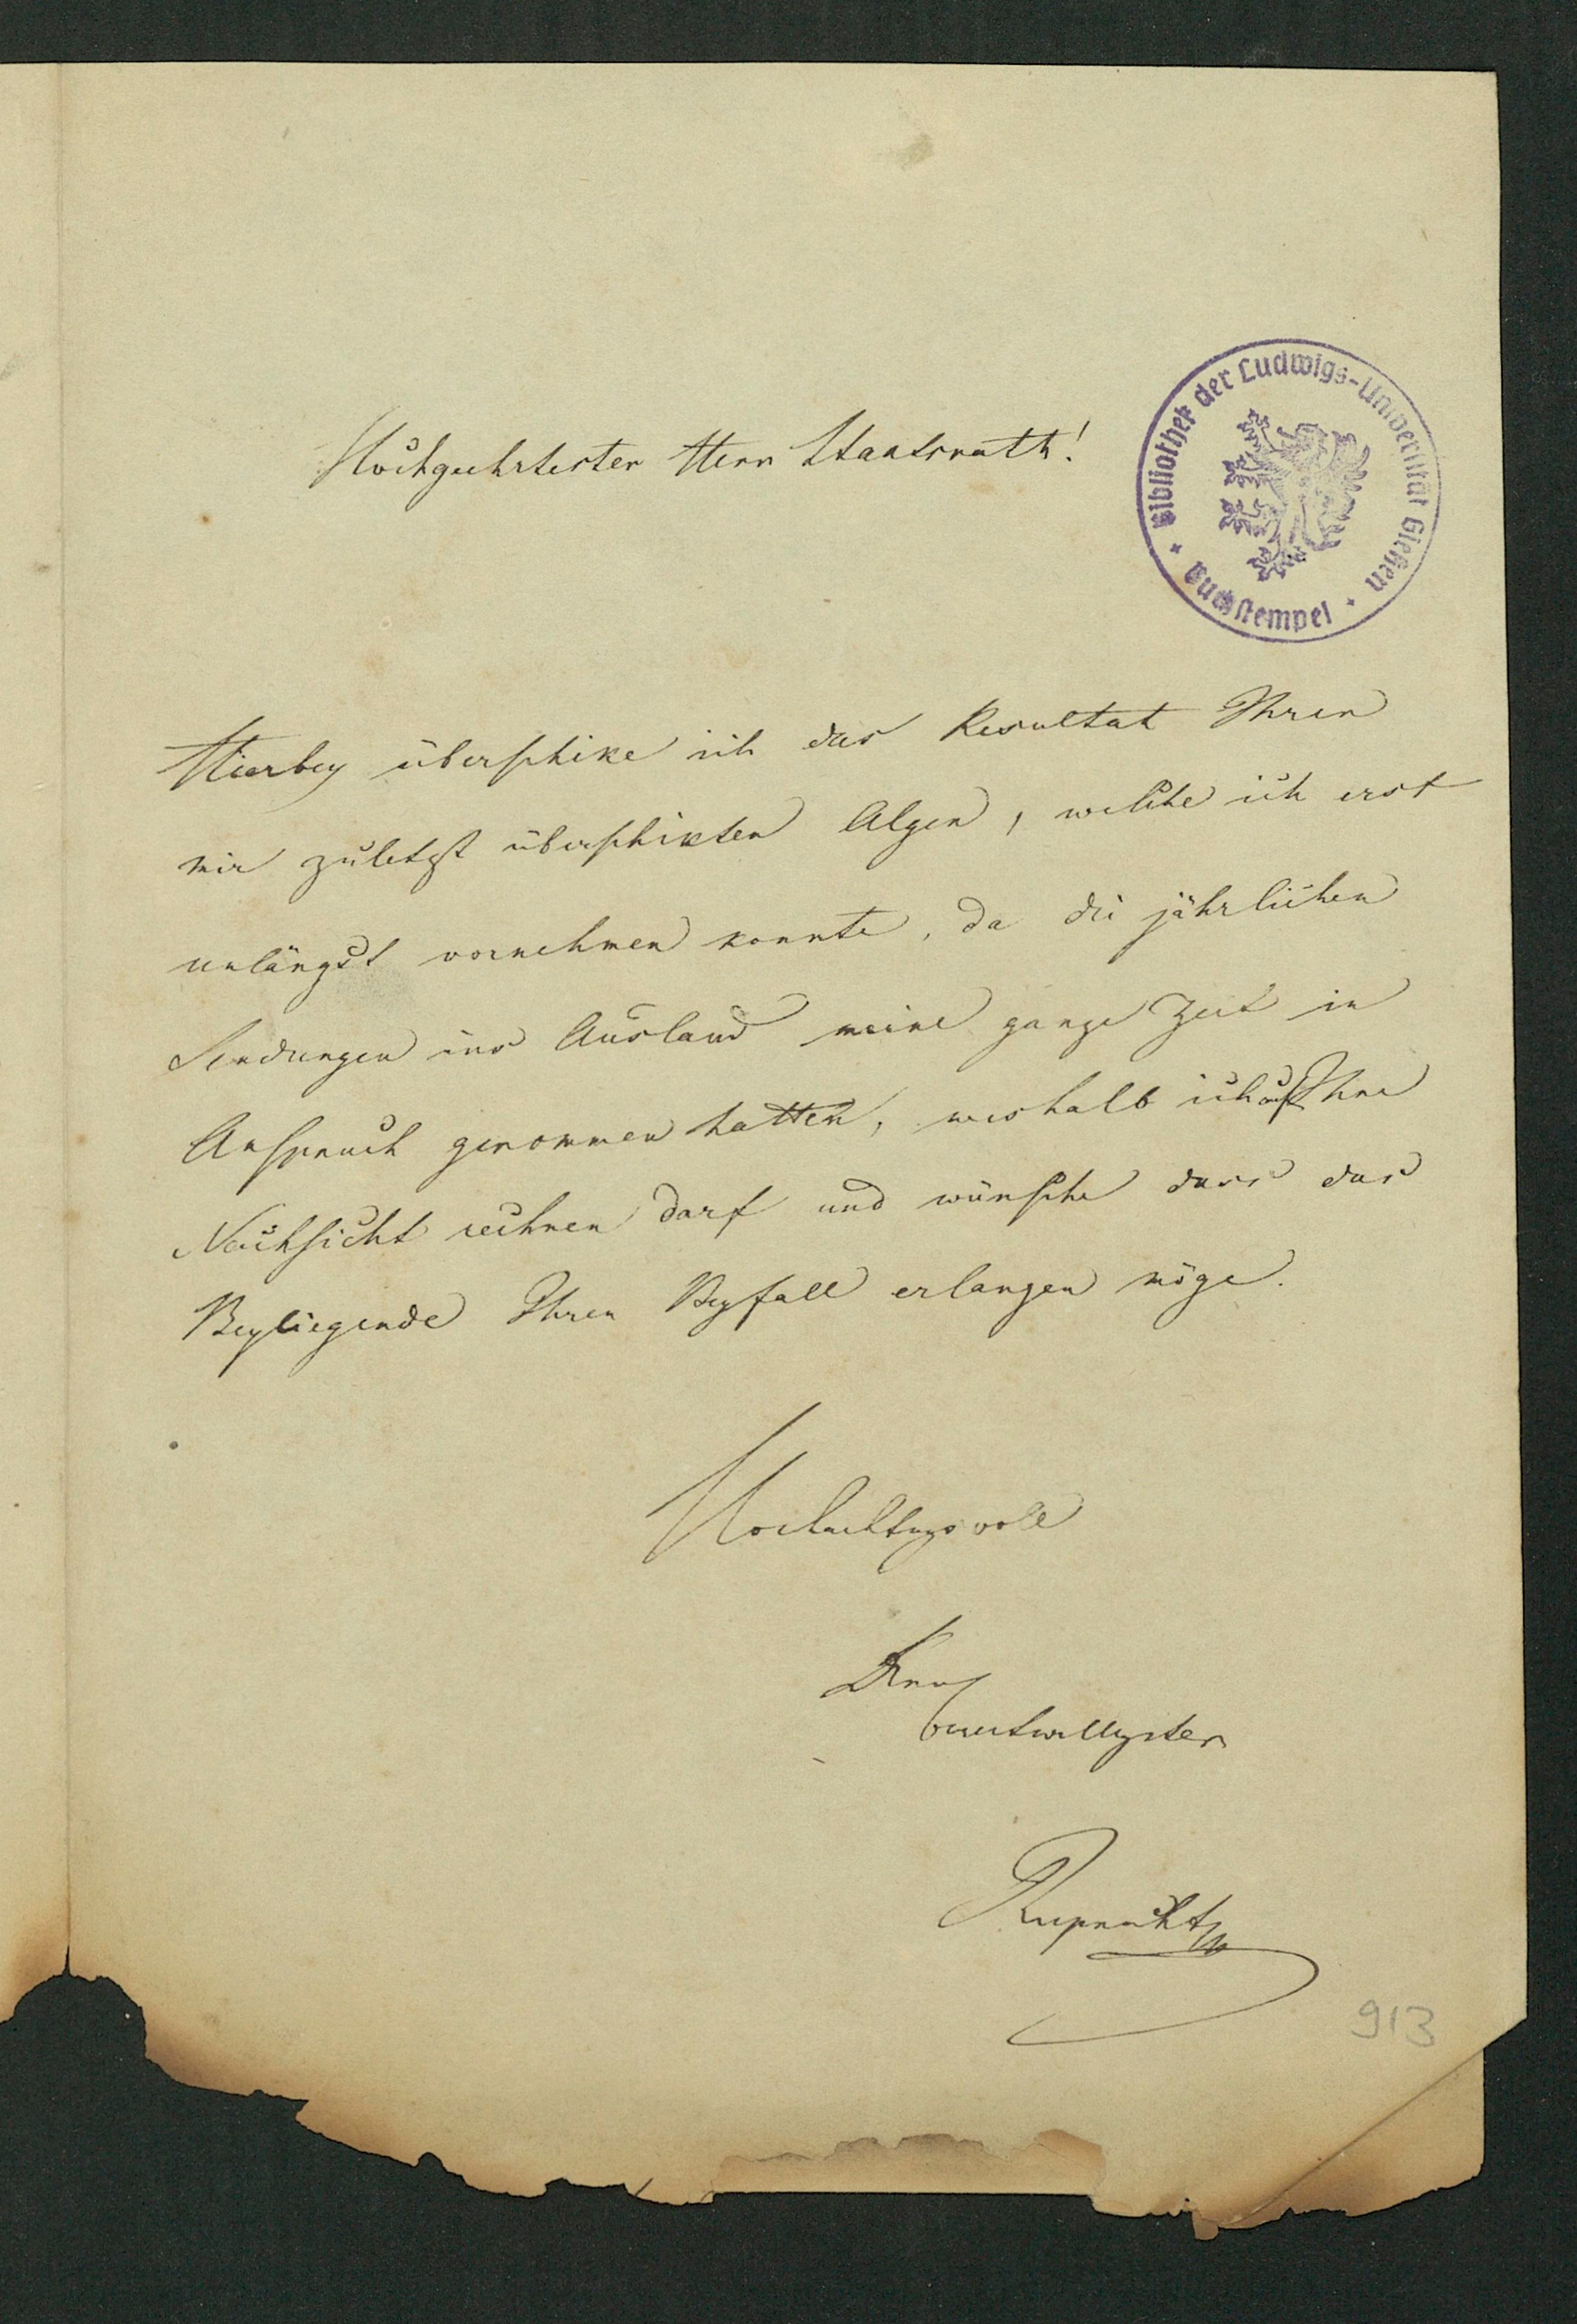 Hochgeehrtester Herr Staatsrath!
Bibliothek der Ludwigs-Universität Gießen
Buchstempel
Hierbey überschike ich das Resultat Ihrer
mir zuletzt überschikten Algen, welche ich erst
unlängst vornehmen konnte, da die jährlichen
Sendungen ins Ausland meine ganze Zeit in
Anspruch genommen hatten, weshalb ich auf Ihre
Nachsicht rechnen darf und wünsche dass das
Beyliegende Ihren Beyfall erlangen möge.
Hochachtungsvoll
Ihr
bereitwilligster
Ruprecht
913